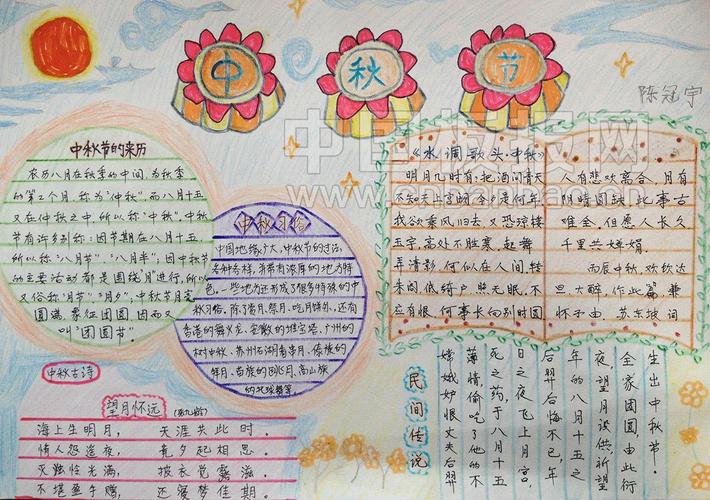 中秋节
陈冠宇
中国板报网
中秋节的来历
农历八月在秋季的中间,为秋季
的第2个月,称为"仲秋",而八月十五
又在仲秋之中,所以称"中秋"。中秋
节有许多别称:因节期在八月十五,
所以称"八月节""八月半";因中秋节
的主要活动都是围绕"月"进行,所以
又俗称"月节""月夕"。中秋节月亮
圆满,象征团圆,因而又
叫"团圆节"。
中秋习俗
中国地缘广大,中秋节的过法
各种各样,并带有浓厚的地方特
色。一些地方还形成了很多特殊的中
秋习俗。除了赏月、祭月、吃月饼外,还有
香港的舞火龙、安徽的堆宝塔、广州的
树中秋、苏州石湖看串月、傣族的
拜月、苗族的跳月、高山族
的托球舞等。
《水调歌头·中秋》
明月几时有?把酒问青天
不知天上宫阙,今夕是何年
我欲乘风归去,又恐琼楼
玉宇,高处不胜寒,起舞
弄清影,何似在人间,转
朱阁,低绮户,照无眠,不
应有恨,何事长向别时圆
人有悲欢离合,月有
阴晴圆缺,此事古
难全。但愿人长久
千里共婵娟。
丙辰中秋,欢饮达
旦,大醉,作此篇,兼
怀子由。苏东坡词
中秋古诗
望月怀远
海上生明月, 天涯共此时。
情人怨遥夜, 竟夕起相思。
灭烛怜光满, 披衣觉露滋。
不堪盈手赠, 还寝梦佳期。
民间传说
嫦娥妒恨丈夫后羿
薄情偷吃了他的不
死之药,于八月十五
日之夜飞上月宫,
后羿后悔不已,年
年的八月十五之
夜,望月设供,祈望
全家团圆,由此衍
生出中秋节。